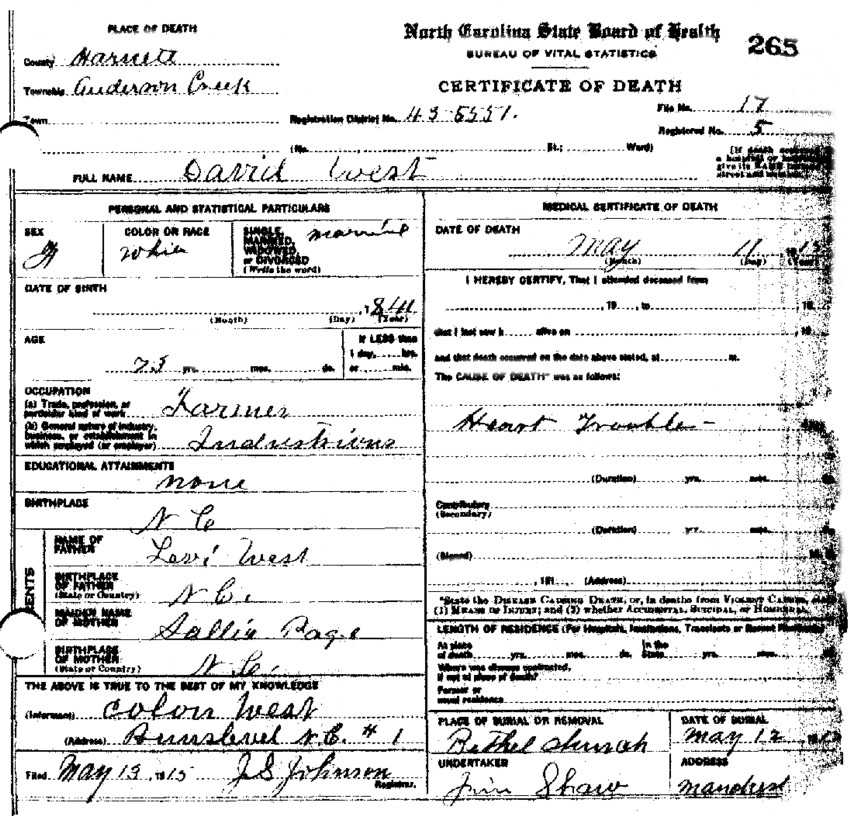 PLACE OF DEATH
North Carolina State Board of Health
BUREAU OF VITAL STATISTICS
265
County Harnett
Township Anderson Creek
CERTIFICATE OF DEATH
Town
Registration District No. 43-5551.
File No. 17
Registered No. 5
(No. St.; Ward)
FULL NAME David West
PERSONAL AND STATISTICAL PARTICULARS
SEX
COLOR OR RACE
White
SINGLE, MARRIED, WIDOWED, or DIVORCED (Write the word)
married
DATE OF BIRTH
(Month) (Day) (Year)
AGE
yrs. mos. ds.
If LESS than 1 day, hrs. or min.
OCCUPATION
(a) Trade, profession, or particular kind of work Farmer
(b) General nature of industry, business, or establishment in which employed (or employer) Industrious
EDUCATIONAL ATTAINMENTS
none
BIRTHPLACE
N C
NAME OF FATHER
Levi West
BIRTHPLACE OF FATHER (State or Country)
N C.
MAIDEN NAME OF MOTHER
Sallie Page
BIRTHPLACE OF MOTHER (State or Country)
N. C.
THE ABOVE IS TRUE TO THE BEST OF MY KNOWLEDGE
(Informant) Colon West
(Address) Bunslevel N.C. # 1
Filed May 13, 1915 J S Johnson
Registrar.
MEDICAL CERTIFICATE OF DEATH
DATE OF DEATH
May 11 1915
(Month) (Day) (Year)
I HEREBY CERTIFY, That I attended deceased from
, 19 , to , 19
that I last saw h alive on , 19
and that death occurred on the date above stated, at m.
The CAUSE OF DEATH* was as follows:
Heart Trouble -
(Duration) yrs. mos.
Contributory (Secondary)
(Duration) yrs. mos.
(Signed)
, 191 (Address)
*State the DISEASE CAUSING DEATH, or, in deaths from VIOLENT CAUSES, state
(1) MEANS OF INJURY; and (2) whether ACCIDENTAL, SUICIDAL, or HOMICIDAL.
LENGTH OF RESIDENCE (For Hospitals, Institutions, Transients or Recent Residents)
At place of death yrs. mos. ds. In the State yrs. mos.
Where was disease contracted, if not at place of death?
Former or usual residence
PLACE OF BURIAL OR REMOVAL
Bethel church
DATE OF BURIAL
May 12
UNDERTAKER
Jim Shaw
ADDRESS